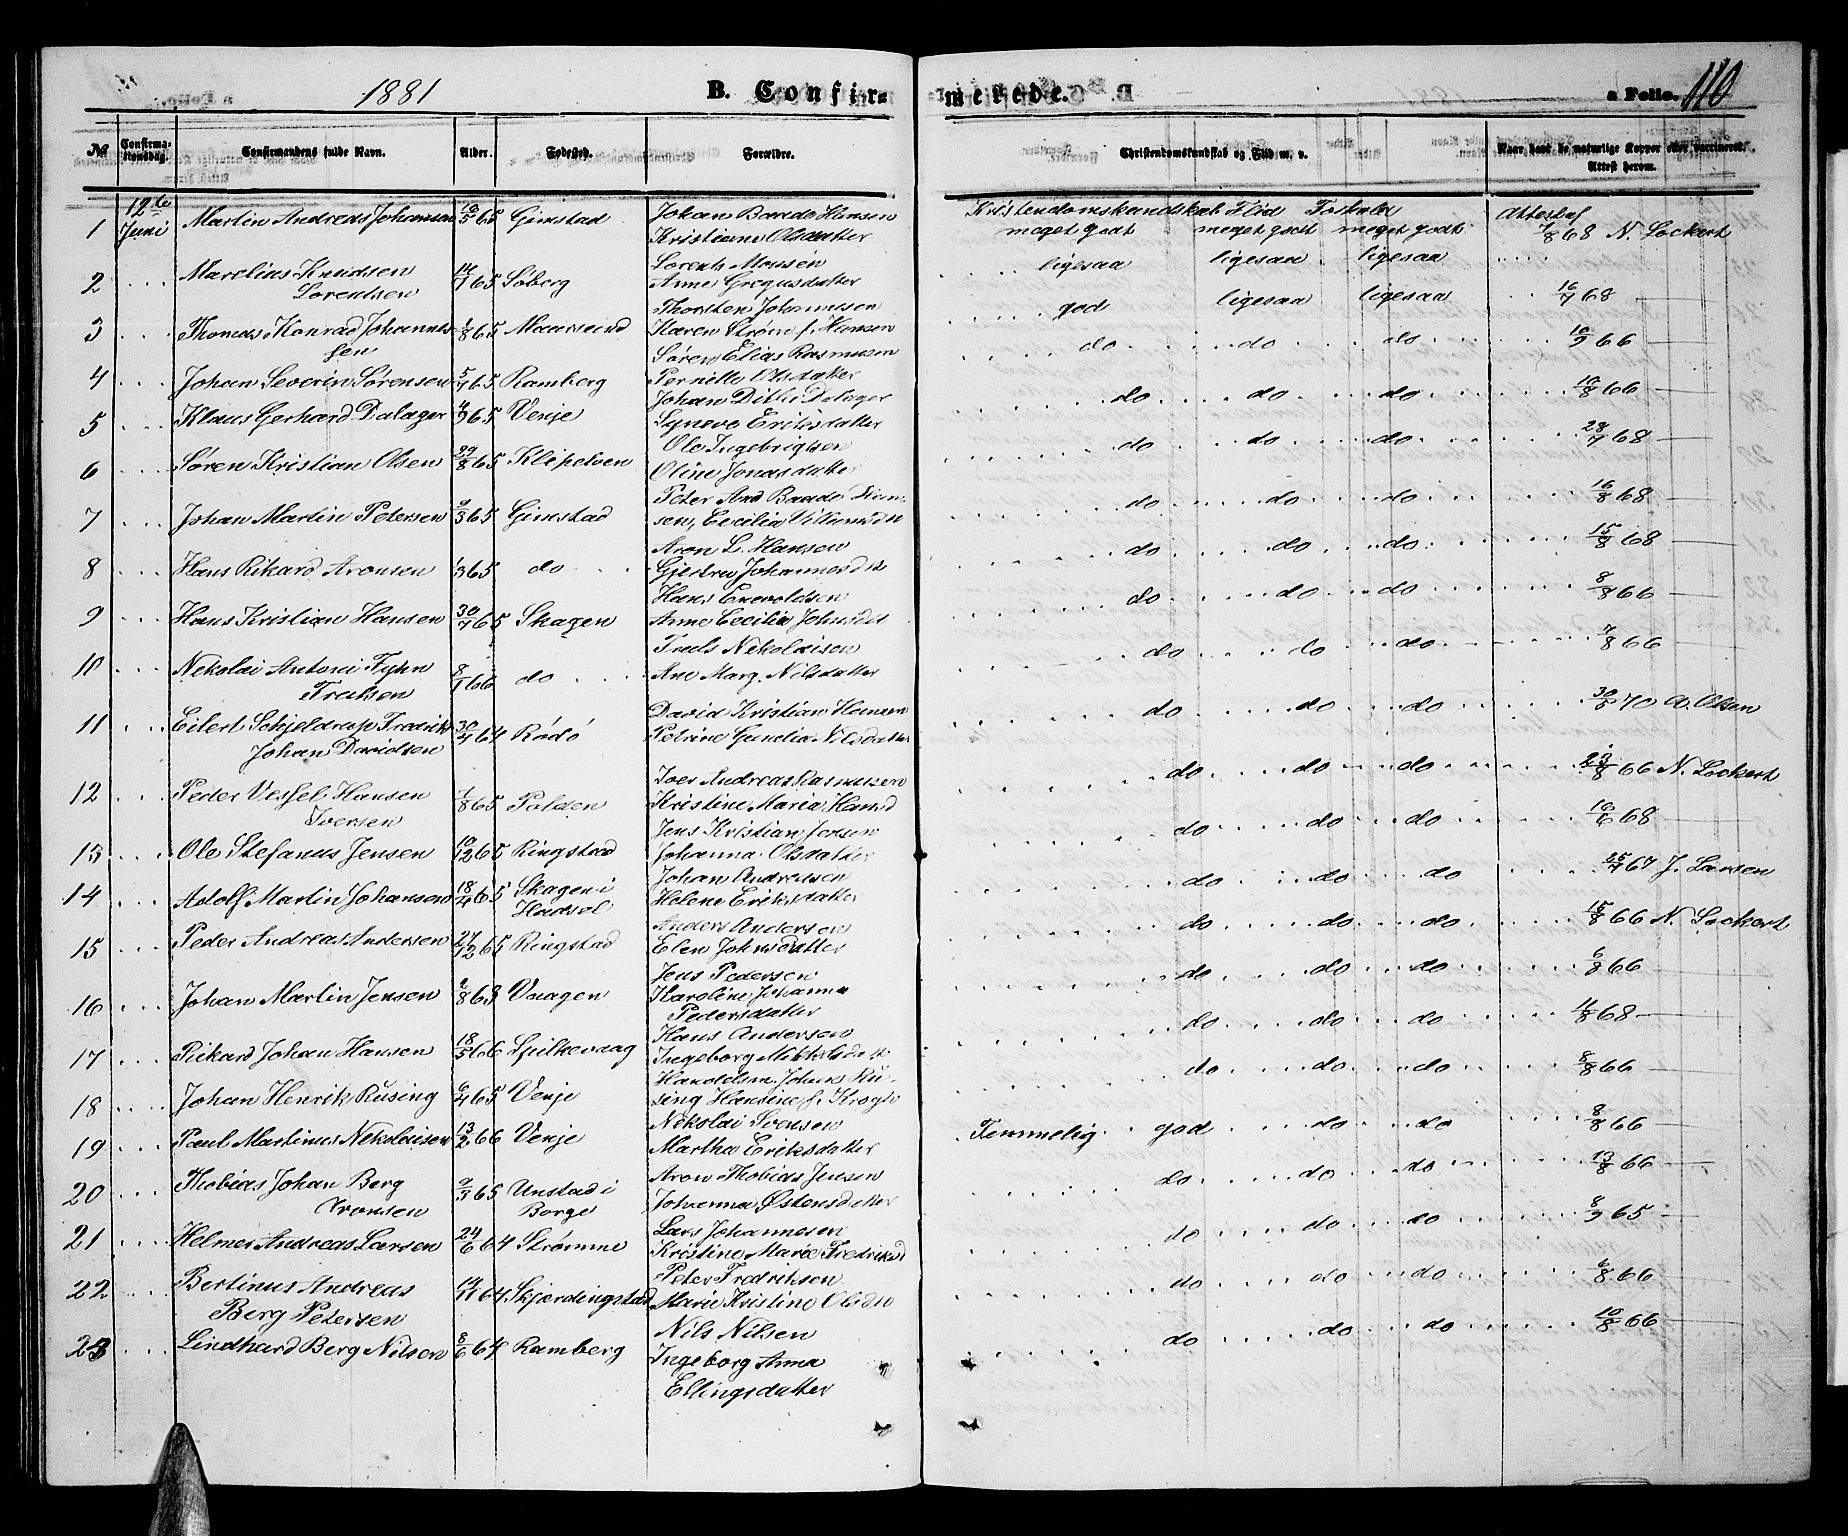 1881 B. Confirmerede. a Folio. 110
No Confirmationsdag. Confirmandens fulde Navn. Alder. Fødested. Forældre. Christendomskundskab og Flid m. v. Naar havt de naturlige Kopper eller vaccineret. Attest herom.
1 12te Juni Martin Andreas Johansen 10/5 65 Gimstad Johan Baade Hansen Kristiane Olsdatter Kristendomskundskab meget godt Flid meget godt Forhold meget godt Attest af 7/8 68 N. Lockert
2 Marelius Knudsen Lorentsen 14/7 65 Søberg Lorents Monsen Anne Gregusdatter ligesaa ligesaa ligesaa
3 Thomas Konrad Johannessen 1/8 65 Maursund Thorsten Johannesen Karen Strøm f. Hansen god ligesaa ligesaa 16/7 68
4 Johan Severin Sørensen 5/7 65 Ramberg Søren Elias Rasmussen Pernille Olsdatter do do do 10/9 66
5 Klaus Gerhard Dalager 4/9 65 Vinje Johan Dithl. Dalager Synøve Eriksdatter do do do 10/8 66
6 Søren Kristian Olsen 29/8 65 Klipelven Ole Ingebrigtsen Oline Jonasdatter do do do 28/7 68
7 Johan Martin Petersen 9/3 65 Gimstad Peter And Baade Hansen, Cecilia Villumsdtr do do do 16/8 68
8 Hans Rikard Aronsen 1/3 65 do Aron L. Hansen Gjertru Johannesdtr do do do 15/8 68
9 Hans Kristian Hansen 30/7 65 Skagen Hans Enevoldsen Anne Cecilia Johnsdtr do do do 8/8 66
10 Nekolai Antoni Fyhn Trulsen 8/1 66 do Truls Nekolaisen Ane Marg. Nilsdatter do do do 7/8 66
11 Eilert Schjeldrup Fredrik Johan Davidsen 30/4 64 Rødø David Kristian Hansen Petrine Gunelia Nilsdatter do do do 30/5 70 A. Olsen
12 Peder Vessel Hansen Iversen 7/8 65 Polden Iver Andreas Rasmussen Kristine Maria Hansd do do do 66 N. Lockert
13 Ole Stefanus Jensen 10/12 65 Ringstad Jens Kristian Jensen Johanna Olsdatter do do do 16/6 68
14 Adolf Martin Johansen 18/4 65 Skagen i Hadsel Johan Andreasen Helene Eriksdatter do do do 25/7 67 J. Larsen
15 Peder Andreas Andersen 27/12 65 Ringstad Anders Andersen Elen Johnsdatter do do do 15/8 66 N. Lockert
16 Johan Martin Jensen 9/8 63 Vaagen Jens Pedersen Karoline Johanna Pedersdatter do do do 6/8 66
17 Rikard Johan Hansen 18/5 66 Spilkevaag Hans Andersen Ingeborg Nekelsdatt do do do 11/8 68
18 Johan Henrik Rüsing 6/4 65 Vinje Handelsm. Johans Rüsing Hansine f. Krogh do do do 8/8 66
19 Paul Martinus Nekolaisen 13/2 66 Vinje Nekolai Svensen Martha Eriksdatter Temmelig god do do 8/8 66
20 Thobias Johan Berg Aronsen 9/3 65 Unstad i Borge Aron Thobias Jensen Johanna Østensdatter do do do 13/8 66
21 Helmer Andreas Larsen 24/6 64 Strømme Lars Johannesen Kristine Marie Fredriksd do do do 8/9 65
22 Bertinus Andreas Berg Petersen 14/11 64 Skjerdingstad Peter Fredriksen Marie Kristine Olsdtr do do do 6/8 66
23 Lindhard Berg Nilsen 8/6 64 Ramberg Nils Nilsen Ingeborg Anna Ellingsdatter do do do 10/8 66